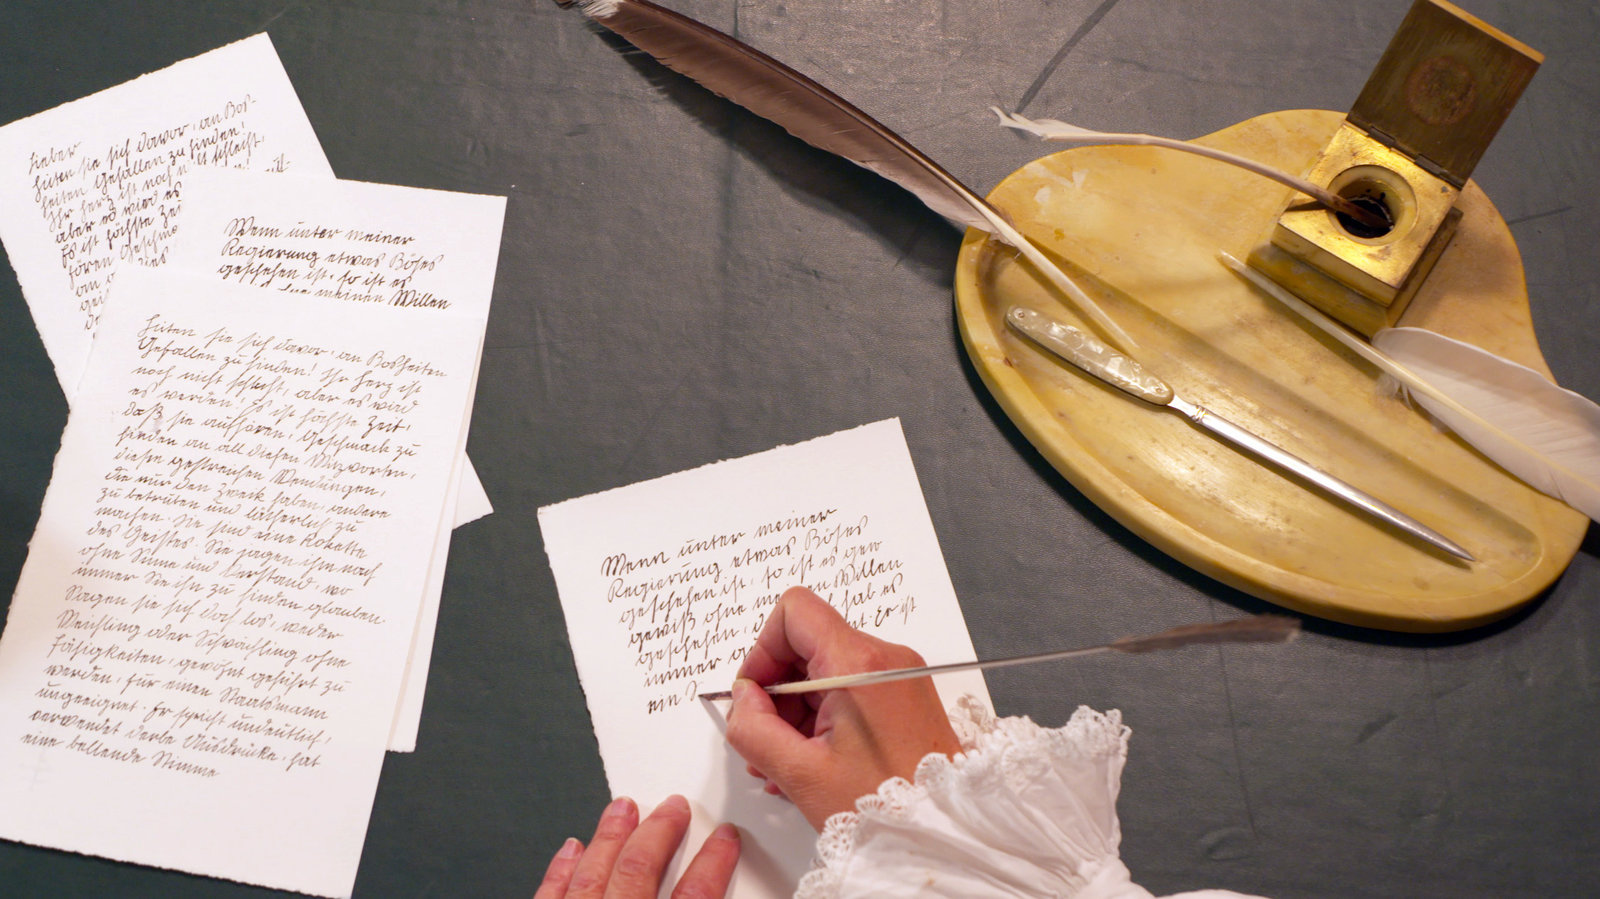 Lieber
hüten sie sich davor, an Bos-
heiten Gefallen zu finden,
Ihr Herz ist noch schlecht,
aber es wird es
Es ist höchste Zei
hören Geschma
an
Wenn unter meiner
Regierung etwas Böses
geschehen ist. so ist es
meinen Willen
hüten sie sich davor, an Bosheiten
Gefallen zu finden! Ihr Herz ist
noch nicht schlecht, aber es wird
es werden! Es ist höchste Zeit,
daß sie aufhören, Geschmack zu
finden an all diesen Witzworten,
diesen geistreichen Wendungen,
die nur den Zweck haben, andere
zu betrüben und lächerlich zu
machen. Sie sind eine Kokette
des Geistes. Sie jagen ihm nach
ohne Sinne und Verstand, wo
immer Sie ihn zu finden glauben.
Sagen sie sich doch los, weder
Weichling oder Schwächling ohne
Fähigkeiten, gewöhnt geführt zu
werden, für einen Staatsmann
ungeeignet. Er spricht undeutlich,
verwendet derbe Ausdrücke, hat
eine bellende Stimme
Wenn unter meiner
Regierung etwas Böses
geschehen ist, so ist es gew
gewiß ohne meinen Willen
geschehen, hab es
immer Es ist
ein S